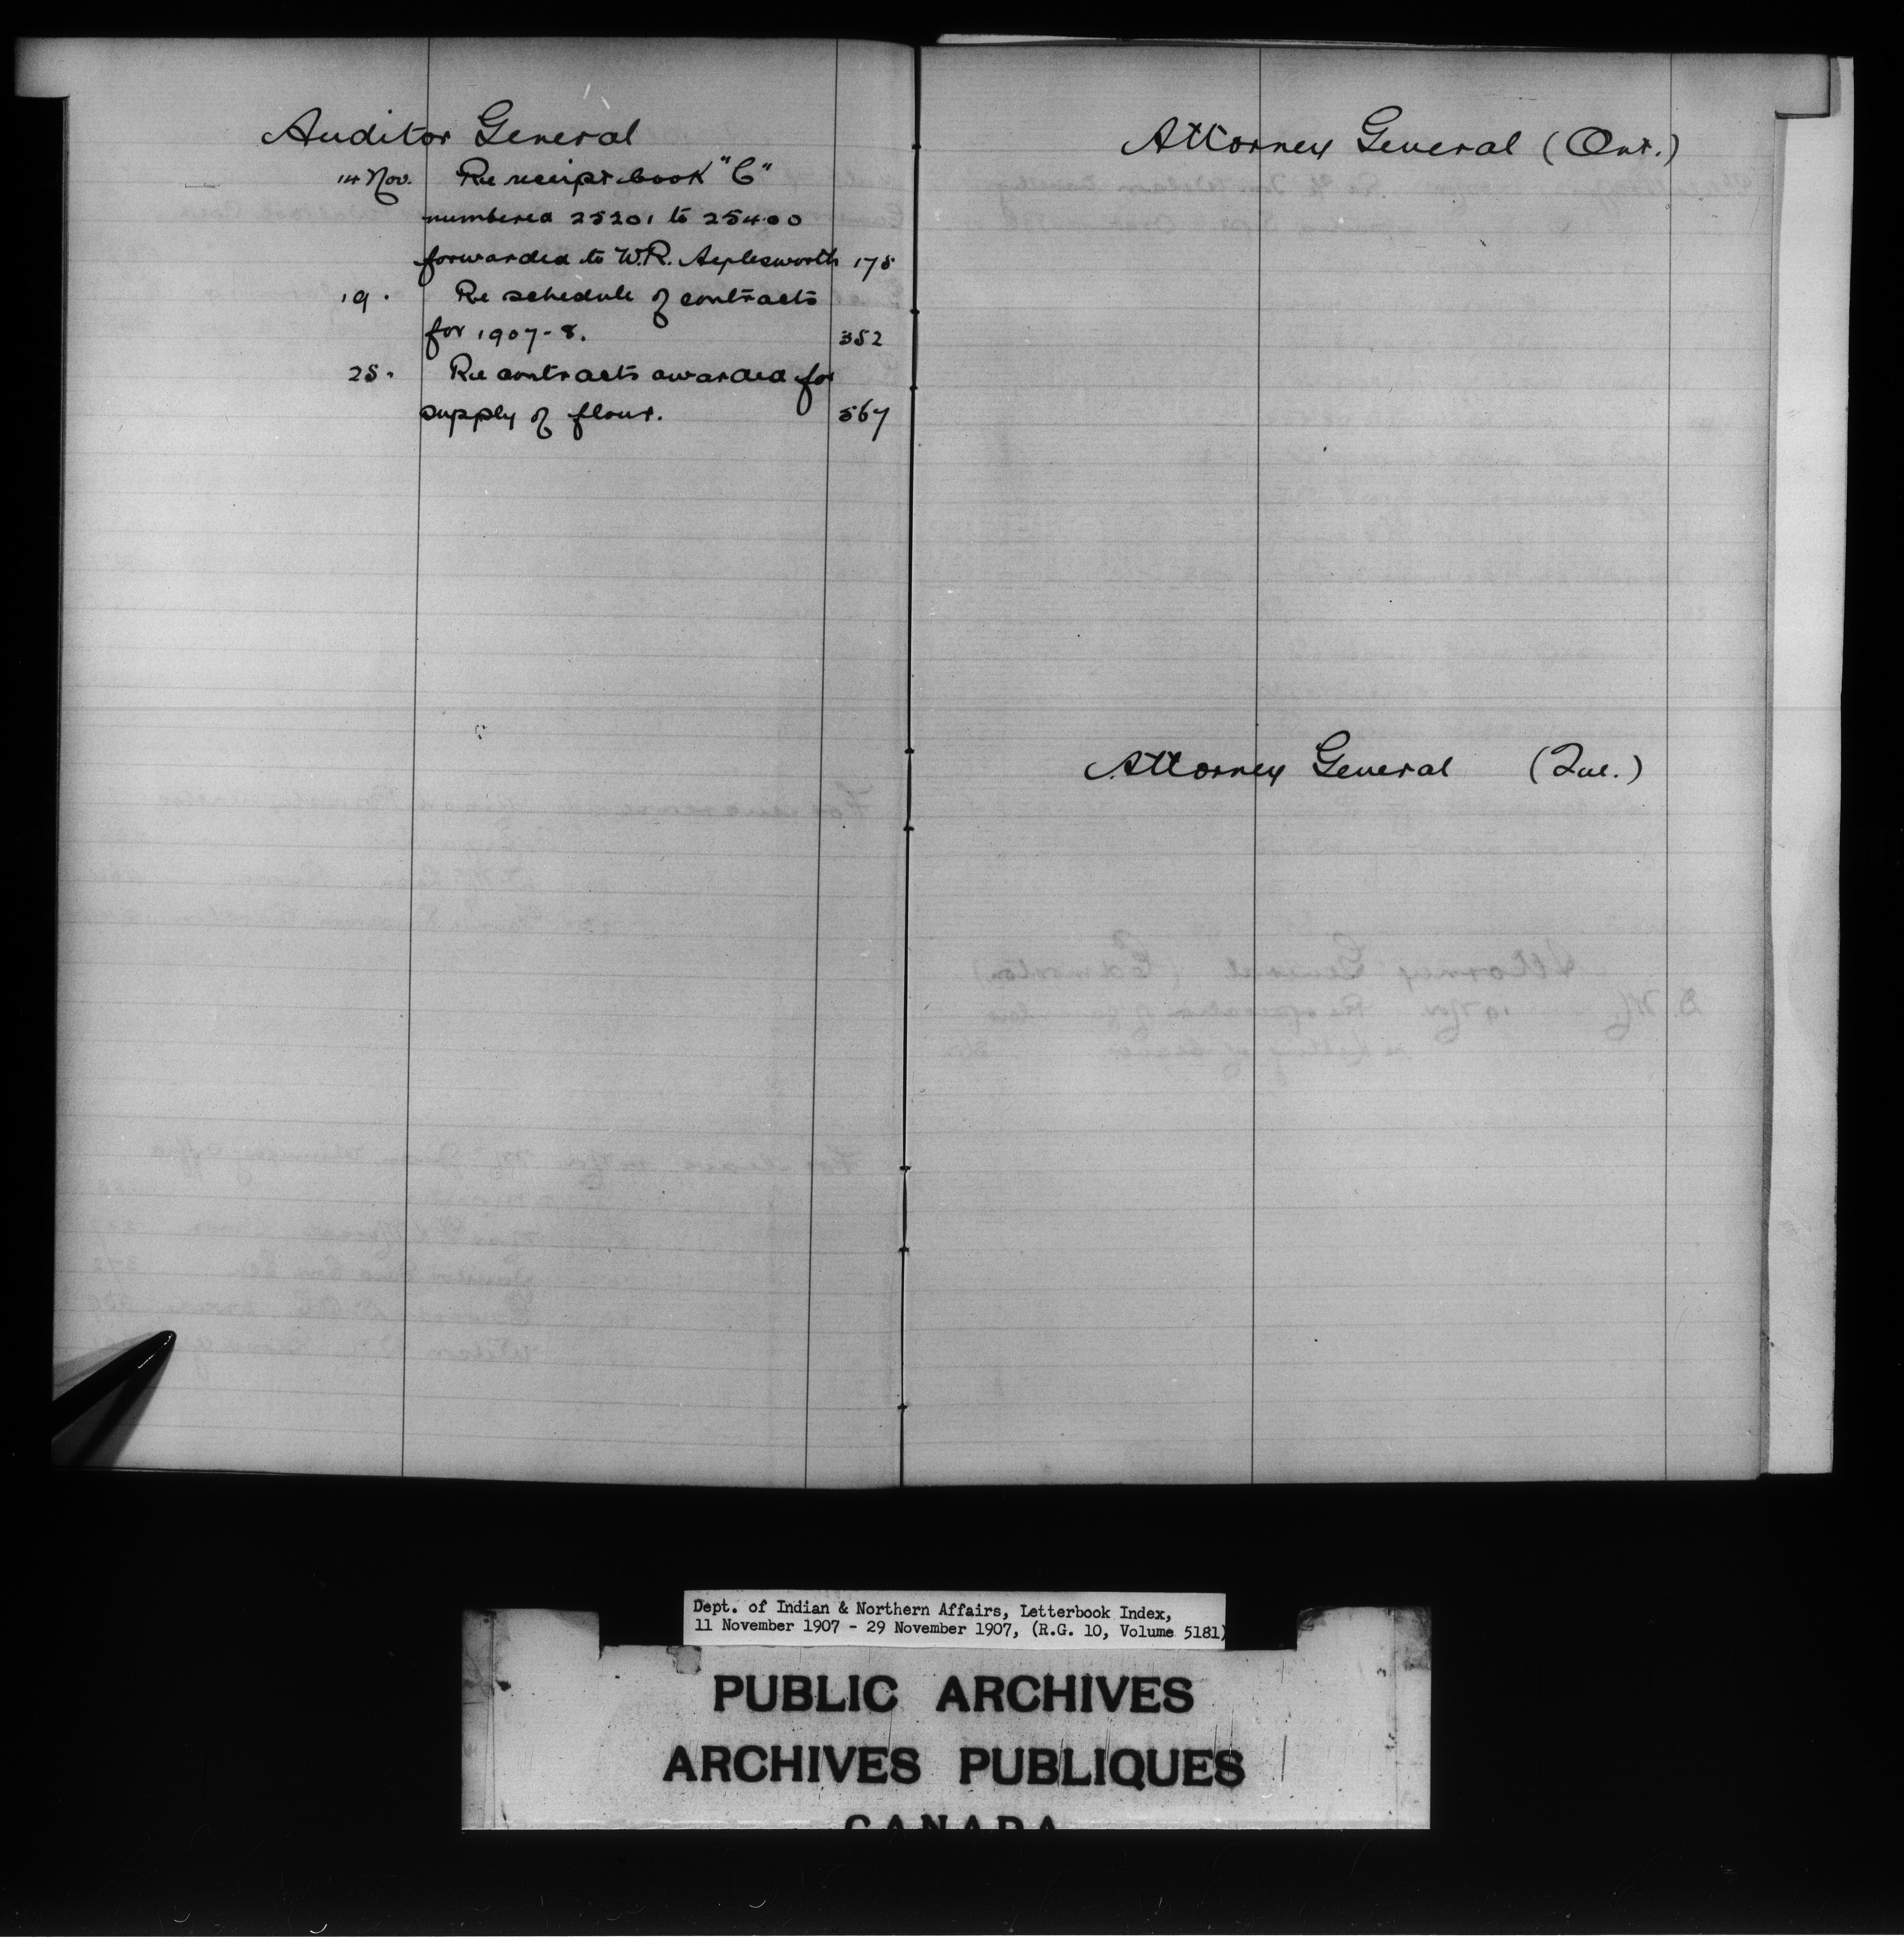 Auditor General
14 Nov. Re receipt book "C"
numbered 25201 to 25400
forwarded to W.R. Aylesworth 175
19 " Re schedule of contracts
for 1907-8. 352
25 " Re contracts awarded for
supply of flour. 567
Attorney General (Ont.)
Attorney General (Que.)
Dept. of Indian & Northern Affairs, Letterbook Index,
11 November 1907 - 29 November 1907, (R.G. 10, Volume 5181)
PUBLIC ARCHIVES
ARCHIVES PUBLIQUES
CANADA